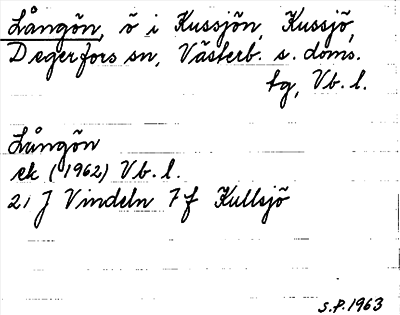 Långön, ö i Kussjön, Kussjö,
Degerfors sn, Västerb. s. doms.
tg, Vb. l.
Långön
ek (1962) Vb. l.
21 J Vindeln 7 f Kullsjö
S.P. 1963